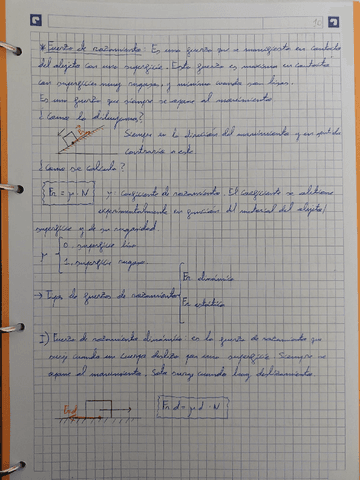 * Fuerza de rozamiento: Es una fuerza que se manifiesta en contacto
del objeto con una superficie. Esta fuerza es máxima en contacto
con superficies muy rugosas, y mínima cuando son lisas.
Es una fuerza que siempre se opone al movimiento
¿Cómo la dibujamos?
Siempre en la dirección del movimiento y en sentido
contrario a este
¿Cómo se calcula?
Fr = μ · N
μ: coeficiente de rozamiento. El coeficiente se obtiene
experimentalmente en función del material del objeto/
superficie y de su rugosidad
μ
0. superficie lisa
1. superficie rugosa.
→ Tipos de fuerzas de rozamiento
Fr dinámica
Fr estática
I) Fuerza de rozamiento dinámica: es la fuerza de rozamiento que
surge cuando un cuerpo desliza por una superficie. Siempre se
opone al movimiento. Solo surge cuando hay deslizamiento.
Fr d
Fr d = μ d · N